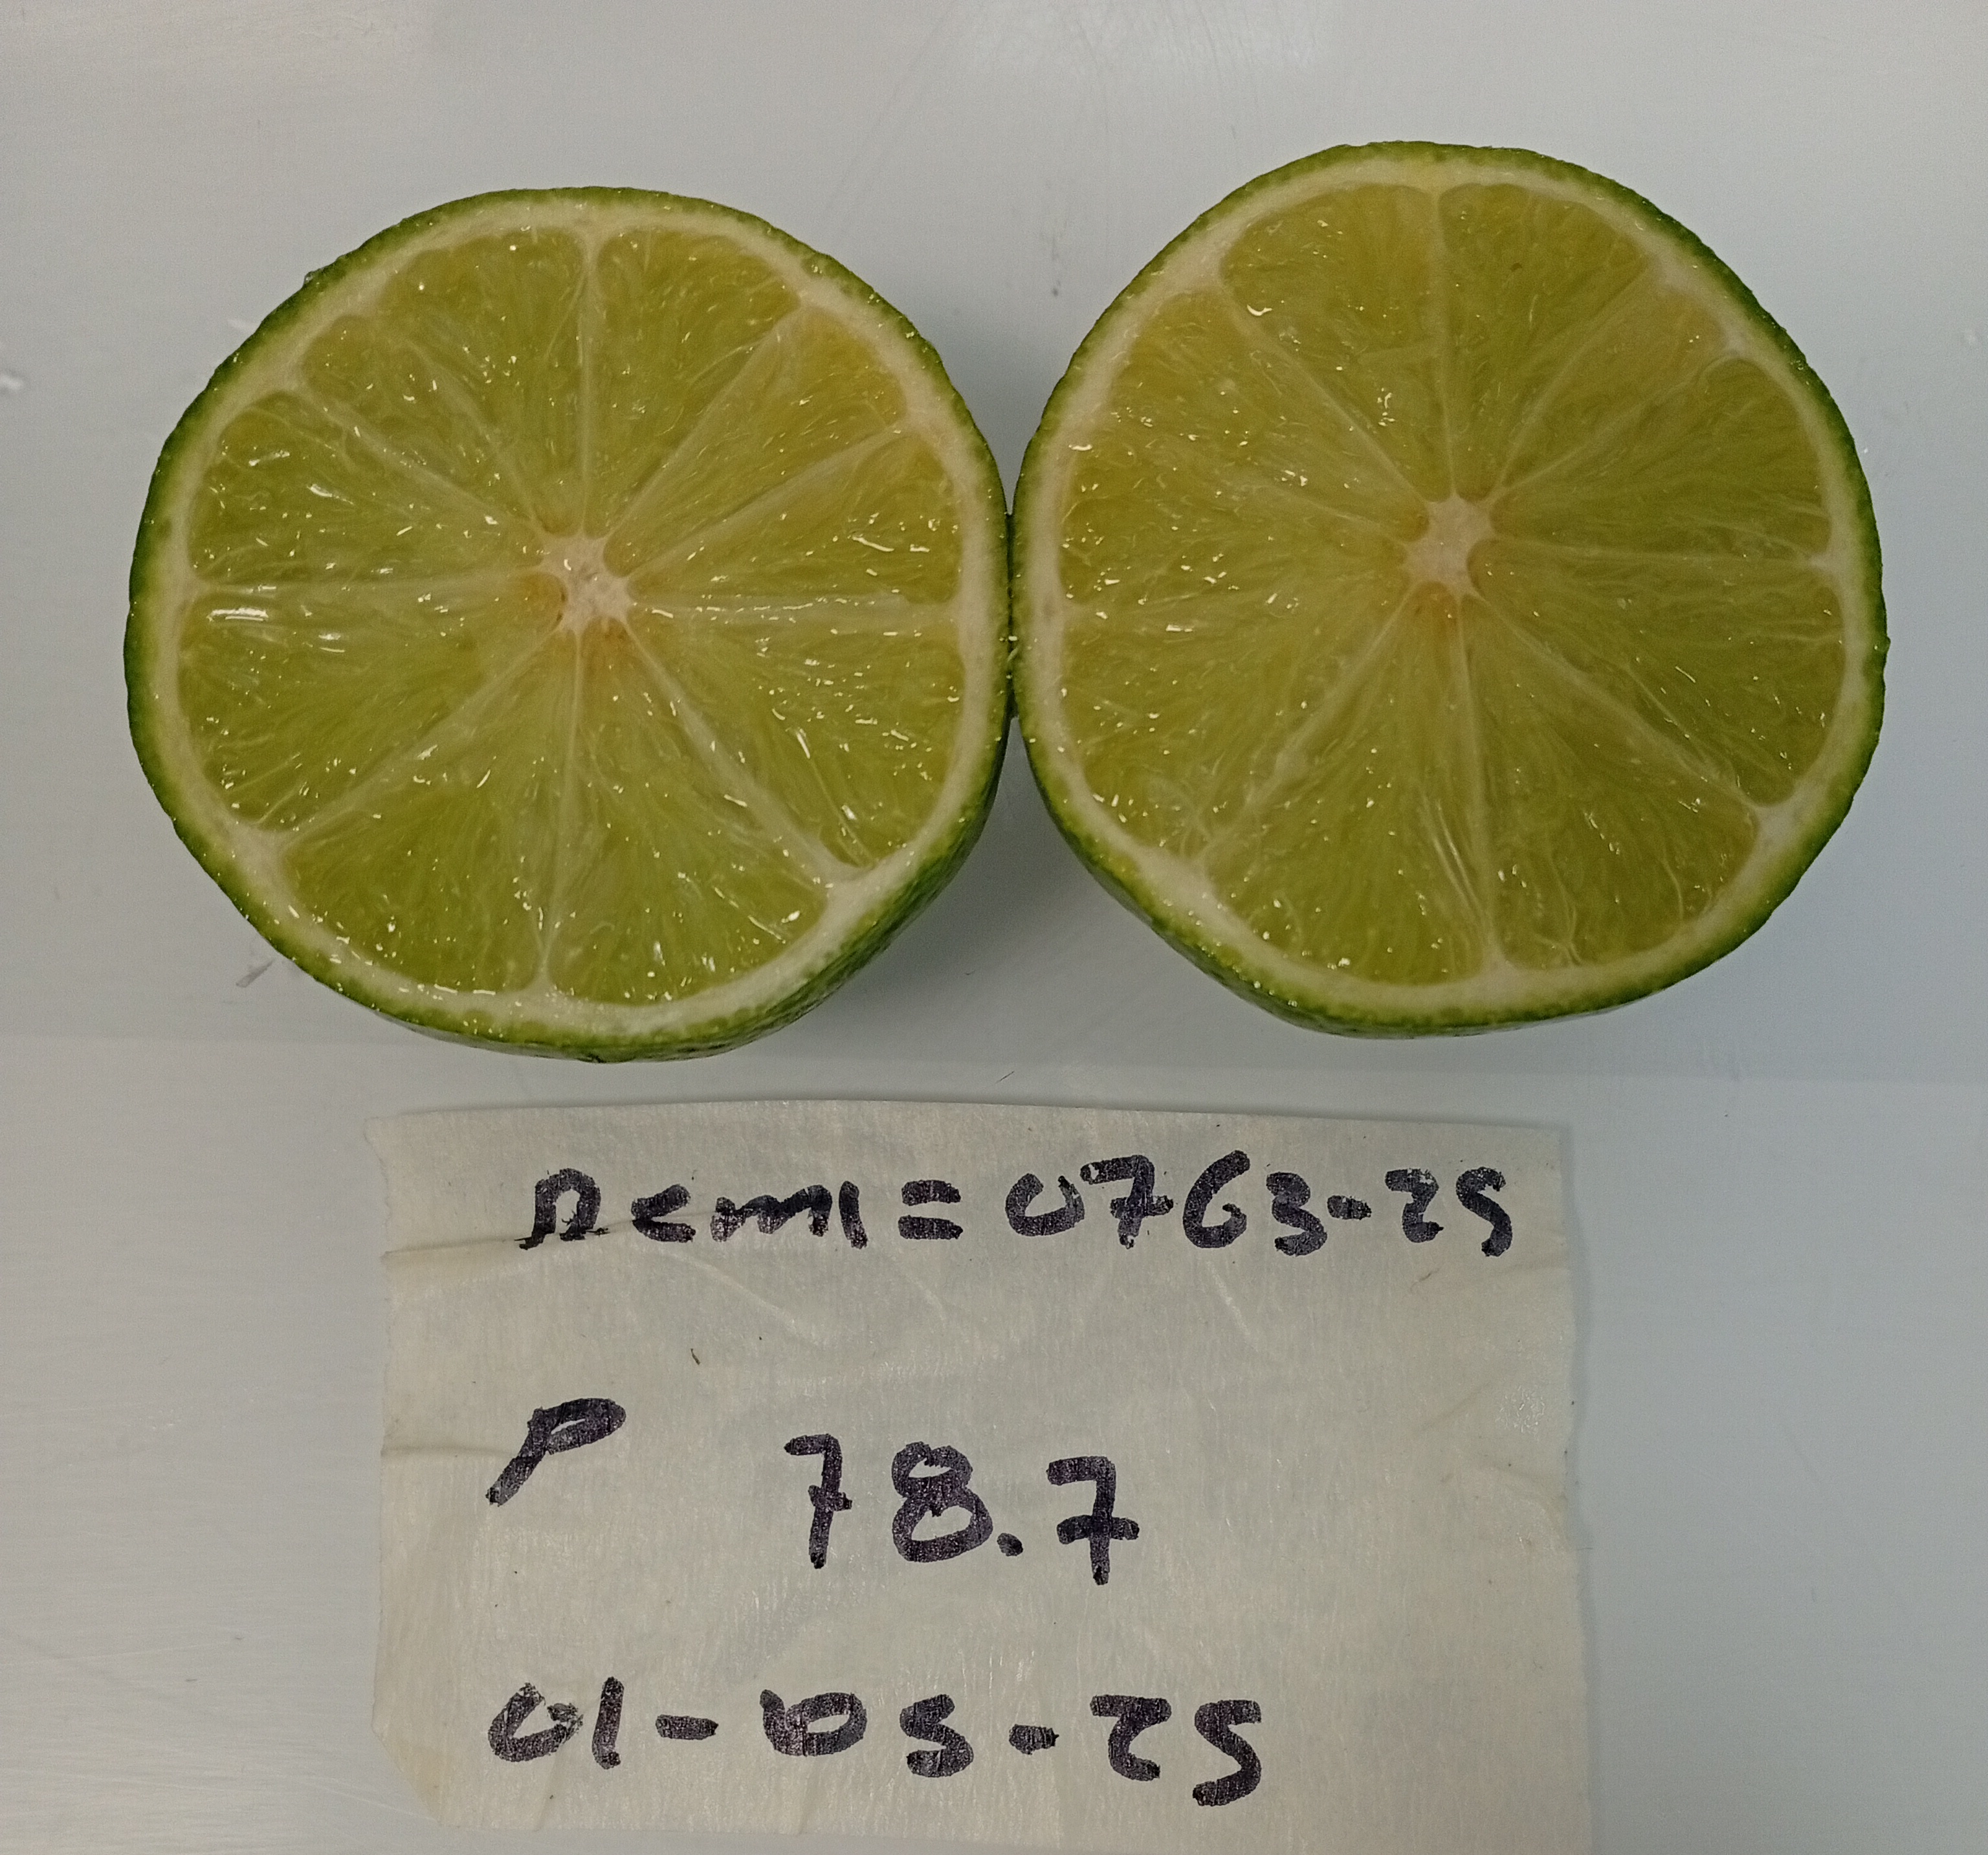 Remi = 0763-25
P 78.7
01-05-25